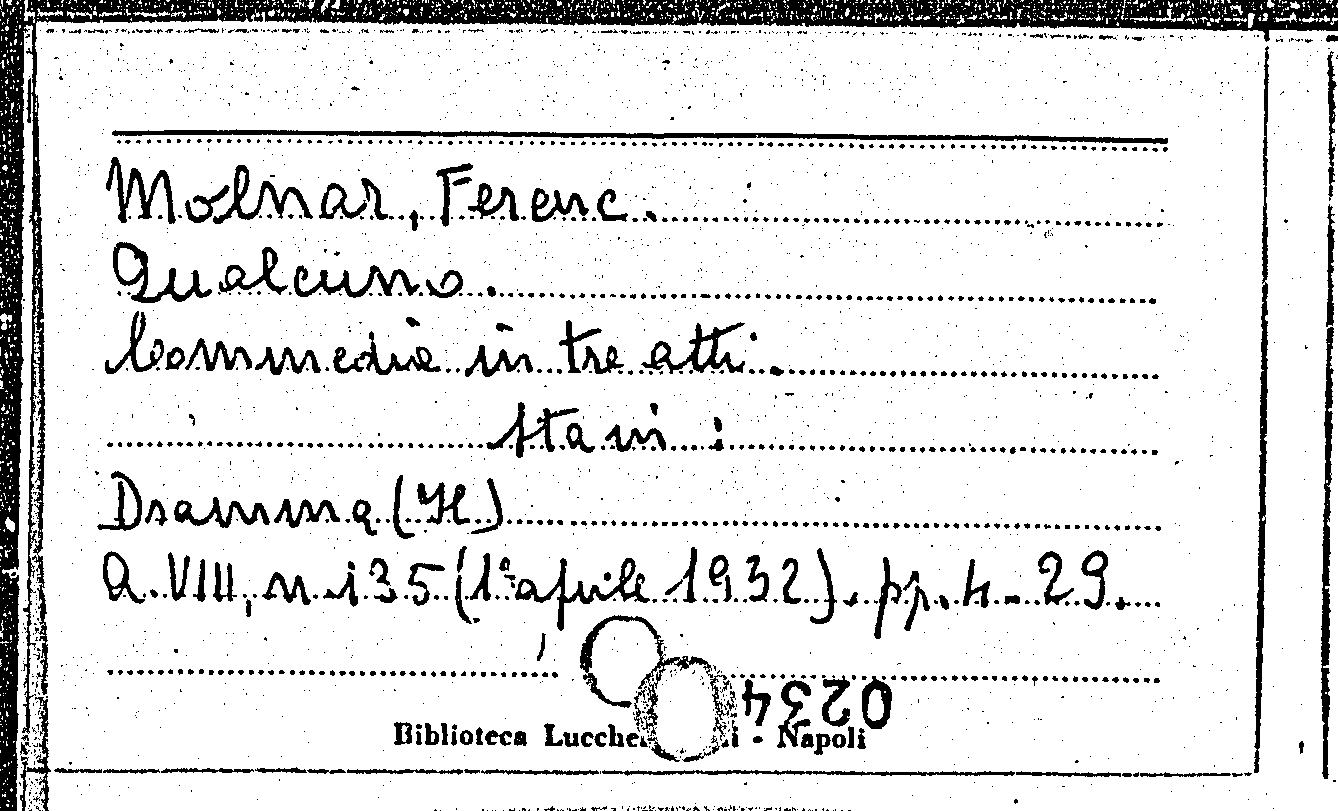 Molnar, Ferenc.
Qualcuno.
Commedia in tre atti.
sta in :
Dramma (Il)
A. VIII, n. 135 (1° aprile 1932). pp. 4-29.
0234
Biblioteca - Napoli